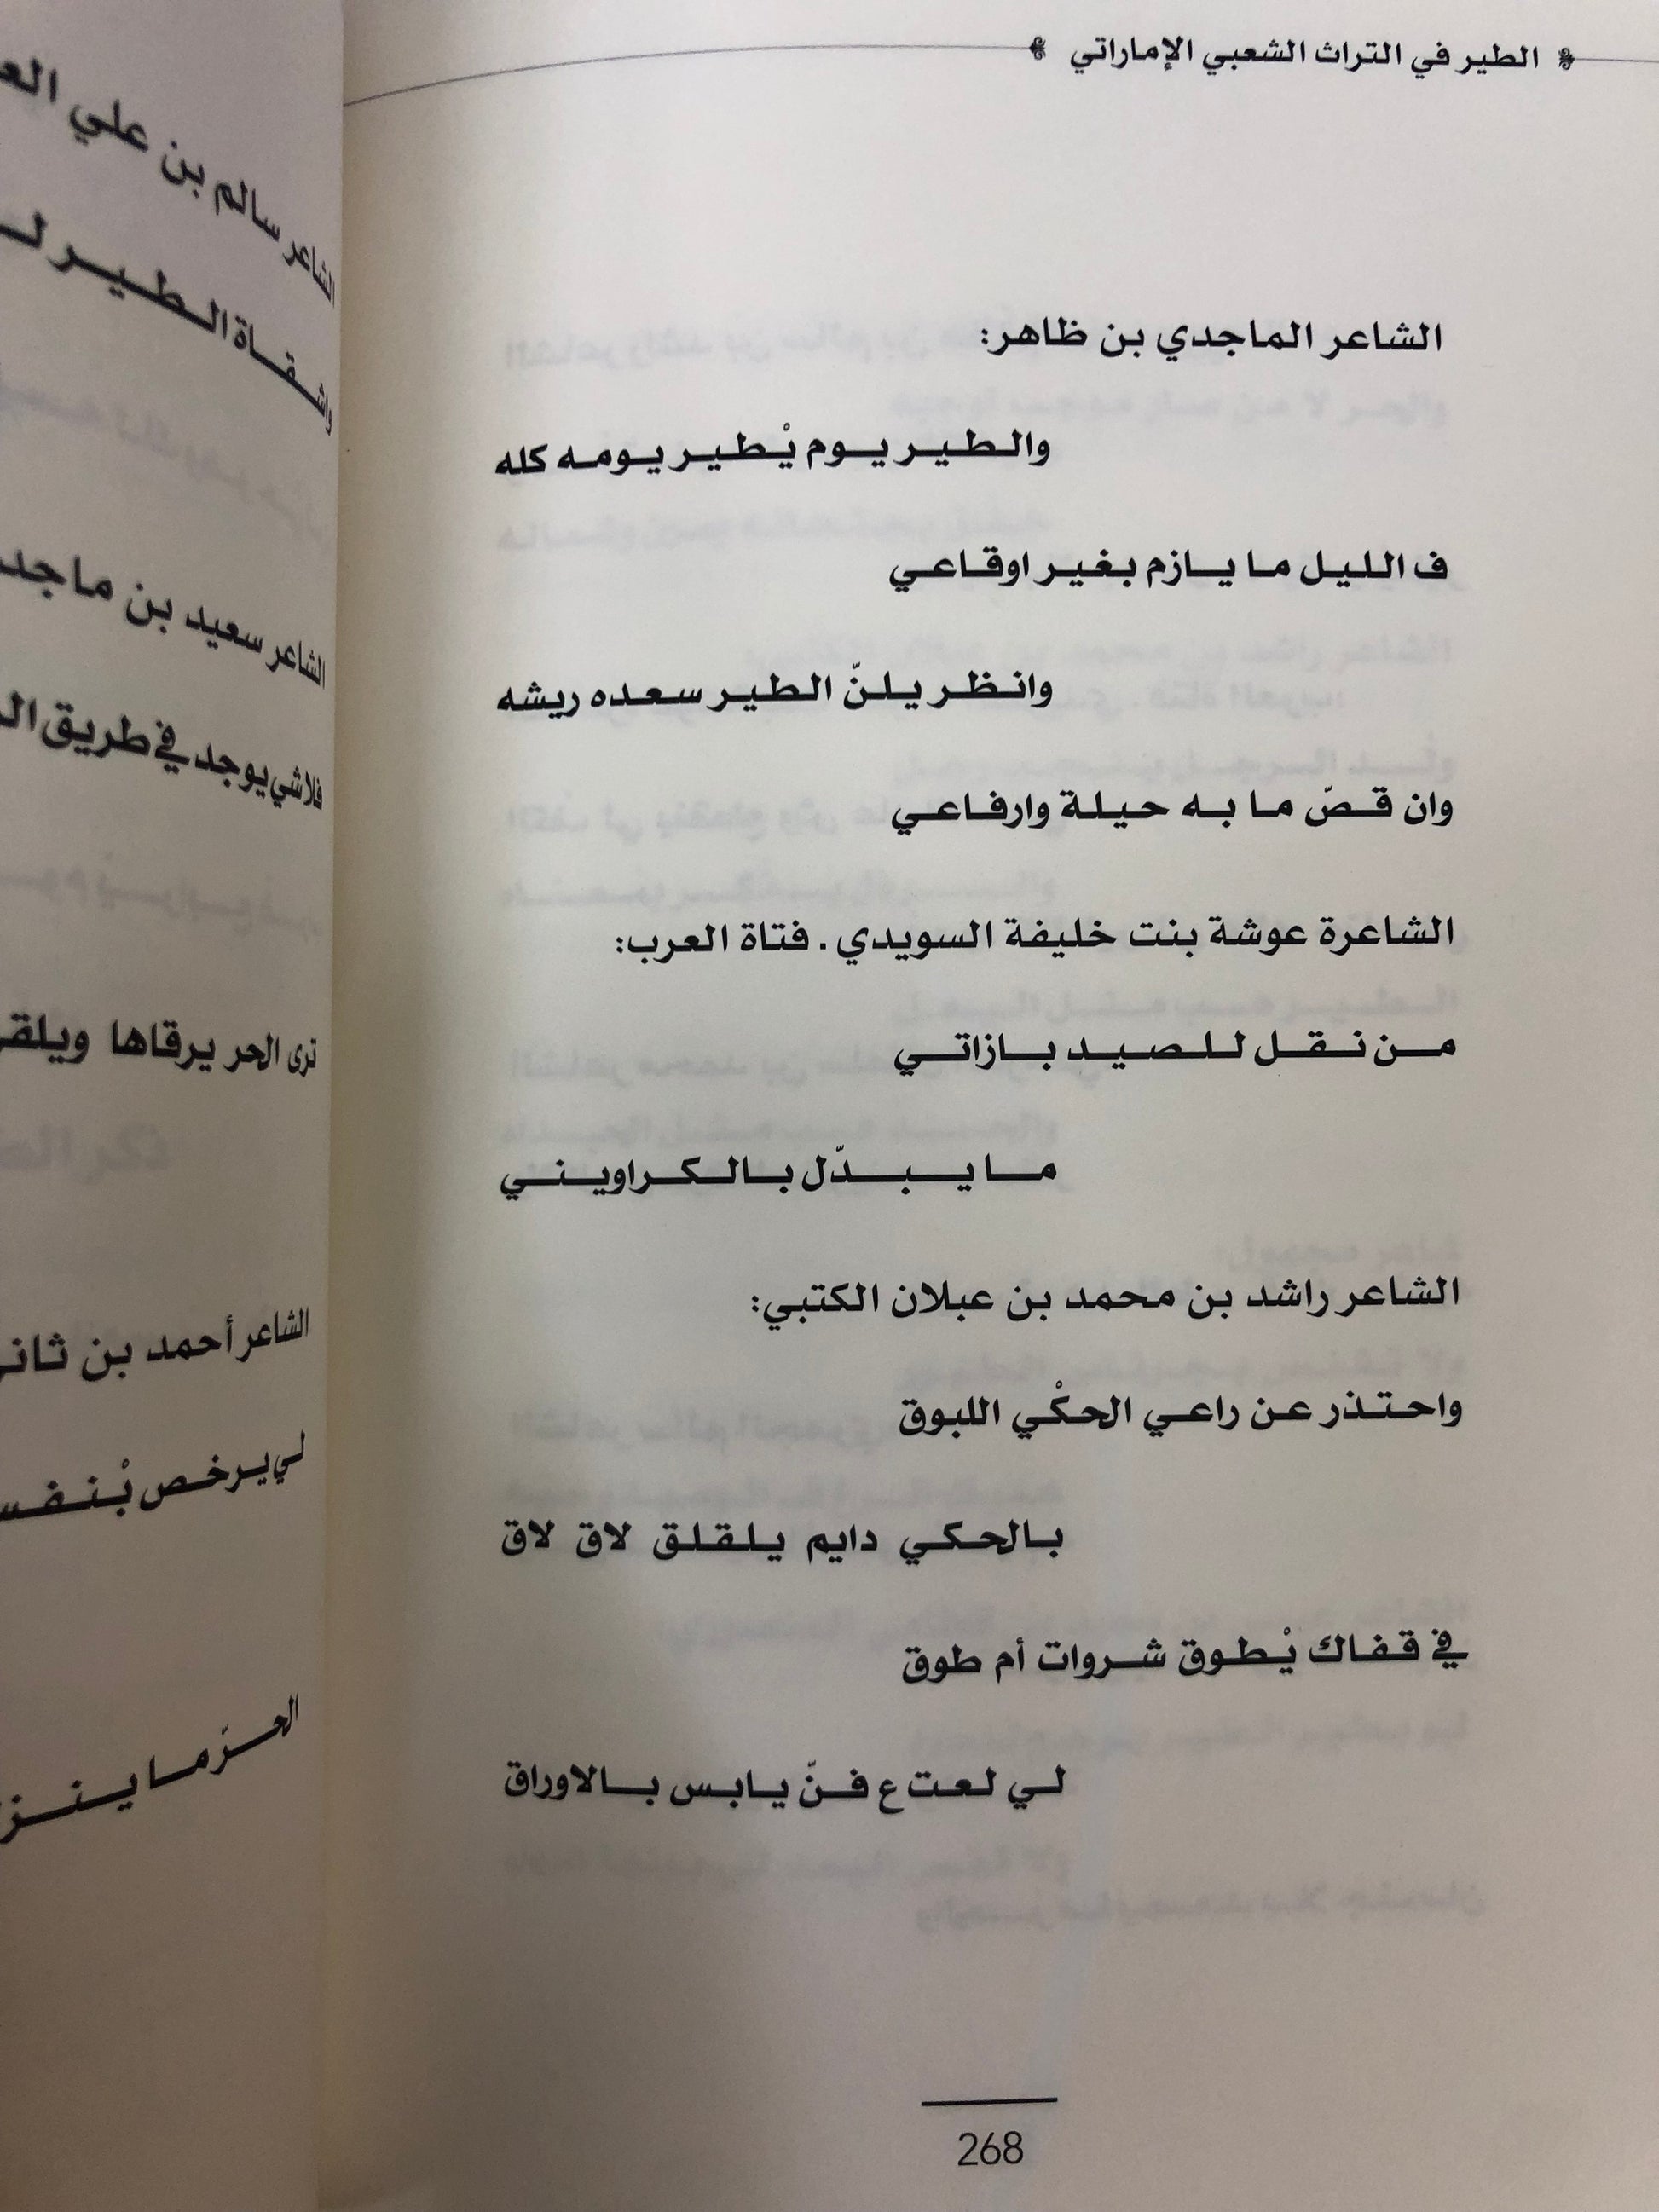 الطير في التراث الشعبي الإماراتي
الشاعر الماجدي بن ظاهر:
والطير يوم يْطير يومه كله
ف الليل ما يازم بغير اوقاعي
وانظر يلنّ الطير سعده ريشه
وان قصّ ما به حيلة وارفاعي
الشاعرة عوشة بنت خليفة السويدي . فتاة العرب:
من نقل للصيد بازاتي
ما يبدّل بالكراويني
الشاعر راشد بن محمد بن عبلان الكتبي:
واحتذر عن راعي الحكْي اللبوق
بالحكي دايم يلقلق لاق لاق
في قفاك يْطوق شروات أم طوق
لي لعت ع فنّ يابس بالاوراق
268
الشاعر سالم بن علي
واشقاة الطير
الشاعر سعيد بن ماجد
فلاشي يوجد في طريق
ترى الحر يرقاها
الشاعر أحمد بن
لي يرخص
الحرّ ما